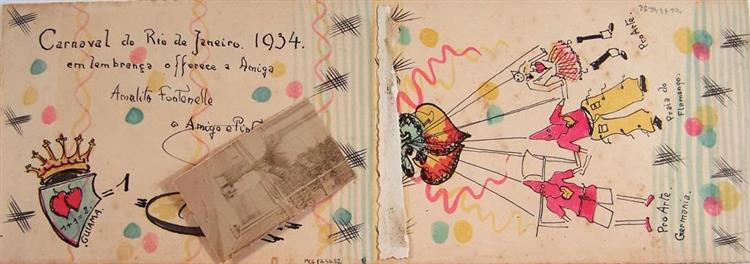 Carnaval do Rio de Janeiro. 1934.
em lembrança offerece a Amiga
Amalita Fontenelle
o Amigo e
= 1
1+1=2
GUIAMA.
Pro Arte.
Praia do
Flamengo.
Pro Arte.
Germania.